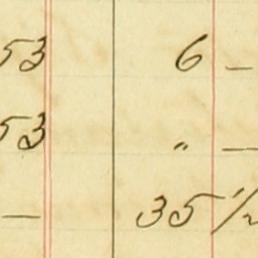 53 6 —
53 " —
— 35 1/2